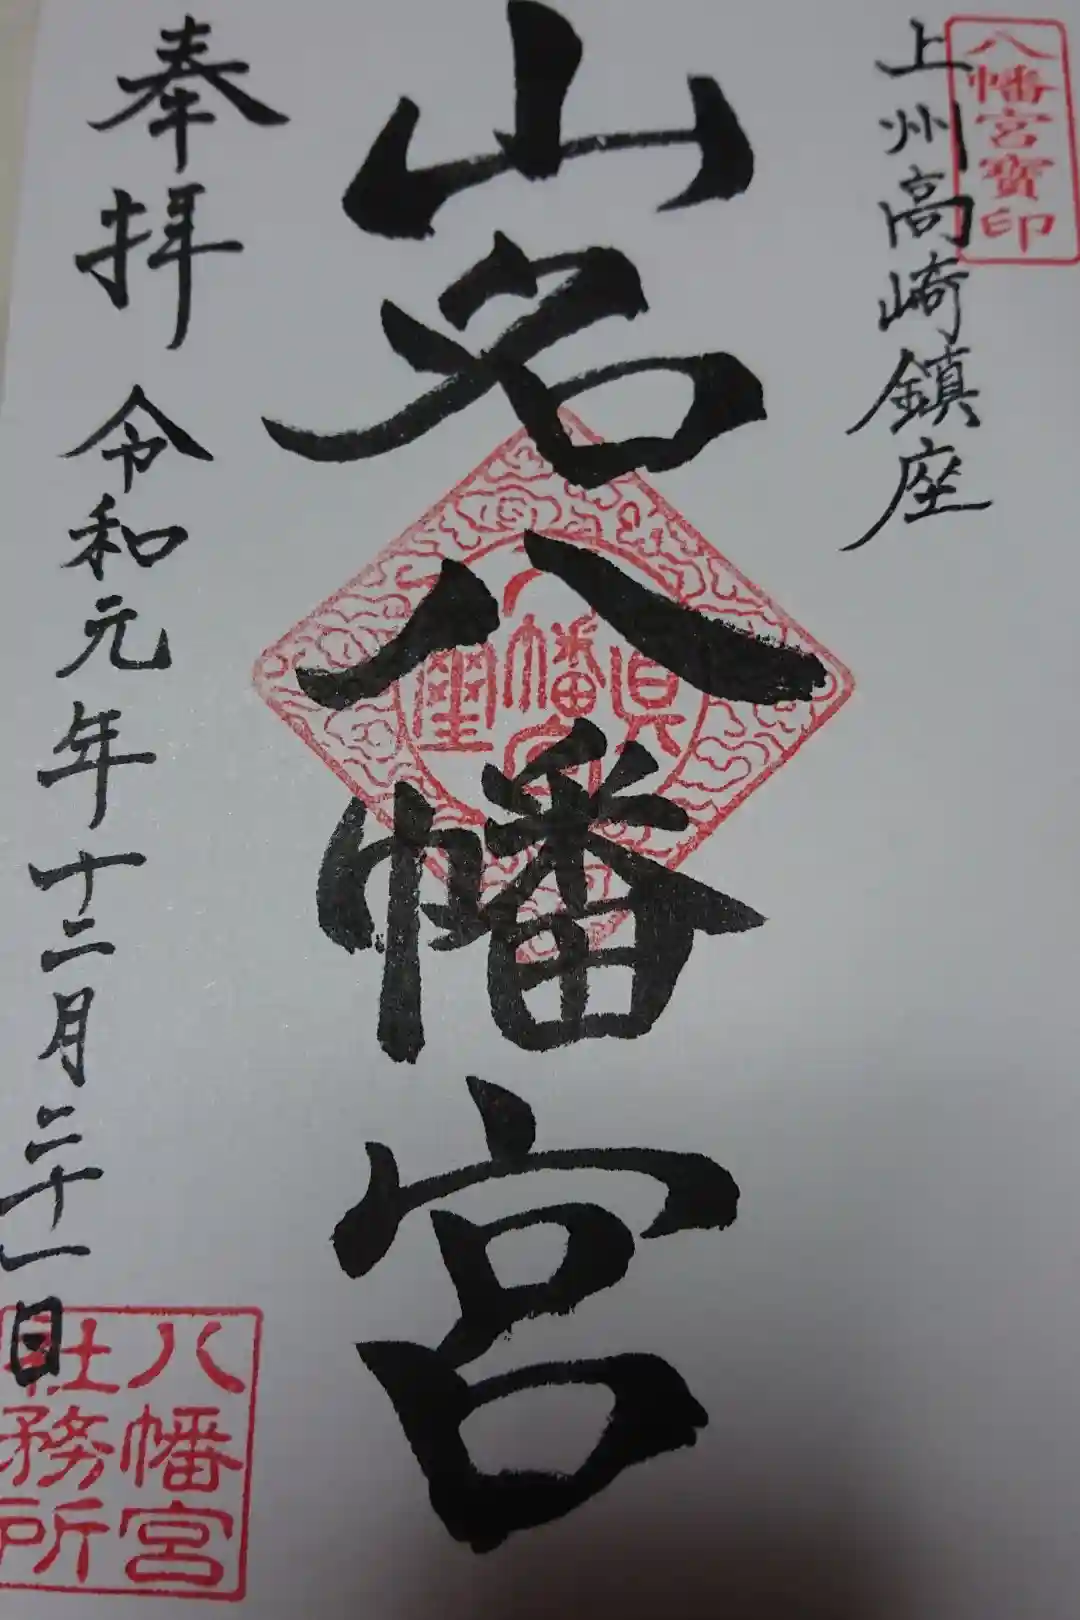 八幡宮寳印
上州高崎鎮座
山名八幡宮
八幡宮
奉拝
令和元年十二月二十一日
八幡宮
社務所